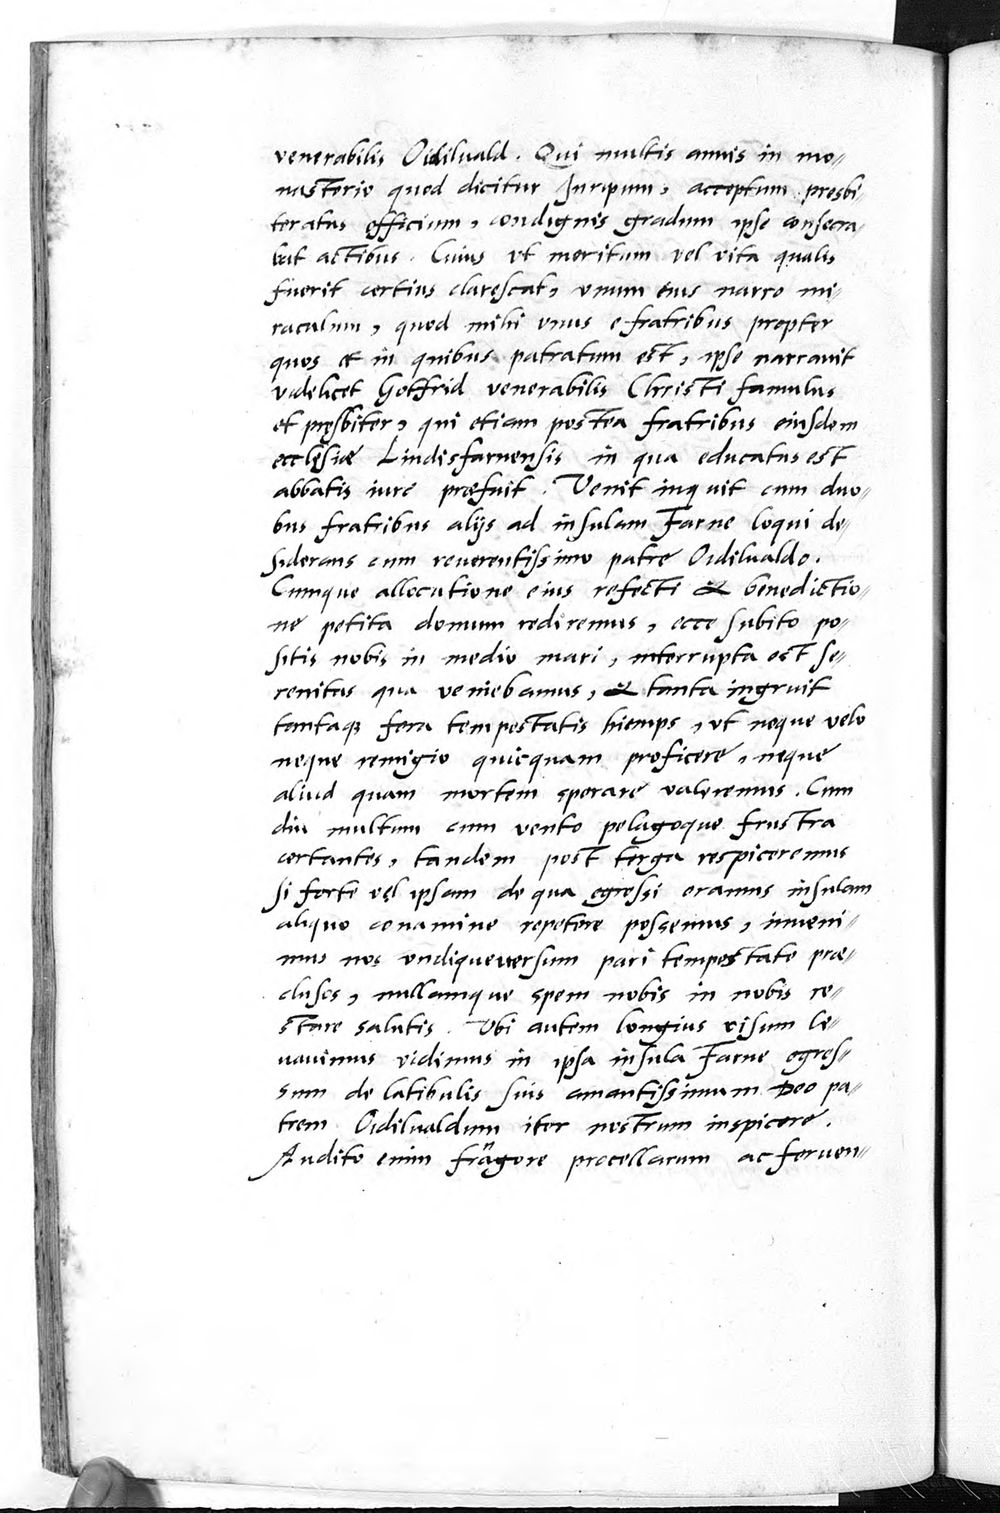 venerabilis Oidilvald. Qui multis annis in mo-
nasterio quod dicitur Inripum, acceptum presbi-
teratus officium, condignis gradum ipse consecra-
bat actibus. Cuius ut meritum vel vita qualis
fuerit certius clarescat, unum eius narro mi-
raculum, quod mihi unus e fratribus propter
quos et in quibus patratum est, ipse narravit
videlicet Gotffrid venerabilis Christi famulus
et pręsbiter, qui etiam postea fratribus eiusdem
ecclęsiæ Lindisfarnensis in qua educatus est
abbatis iure præfuit. Venit inquit cum duo-
bus fratribus alijs ad insulam Farne loqui de-
siderans cum reverentissimo patre Oidilvaldo.
Cumque allocutione eius refecti & benedictio-
ne petita domum rediremus, ecce subito po-
sitis nobis in medio mari, interrupta est se-
renitas qua veniebamus, & tanta ingruit
tantaq; fera tempestatis hiemps, ut neque velo
neque remigio quicquam proficere, neque
aliud quam mortem sperare valeremus. Cum
diu multum cum vento pelagoque frustra
certantes, tandem post terga respiceremus
si forte vel ipsam de qua egressi eramus insulam
aliquo conamine repetere possemus, inveni-
mus nos undiqueversum pari tempestate præ-
clusos, nullamque spem nobis in nobis re-
stare salutis. Ubi autem longius visum le-
vavimus vidimus in ipsa insula Farne egres-
sum de latibulis suis amantissimum Deo pa-
trem Oidilvaldum iter nostrum inspicere.
Audito enim fragore procellarum ac ferven-